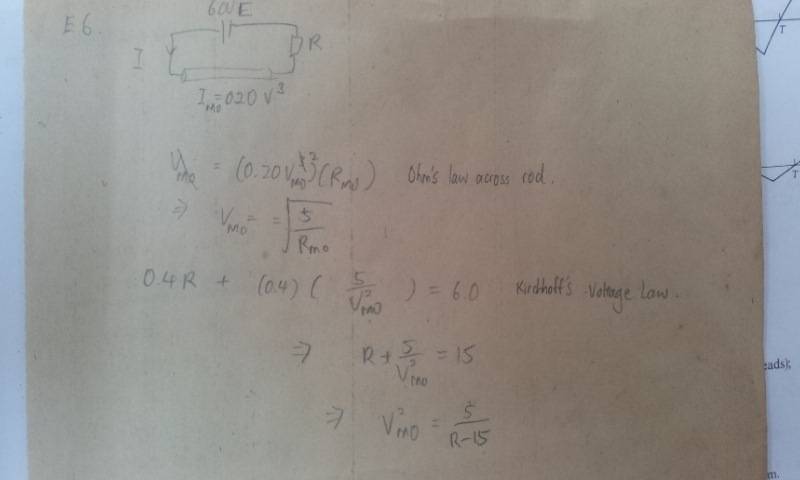 E6.
6.0V E
I
R
I_MO = 0.20 V³
V_MO = (0.20 V_MO³)(R_MO) Ohm's law across rod.
⇒ V_MO = = √(5/R_MO)
0.4R + (0.4)(5/V²_MO) = 6.0 Kirchhoff's Voltage Law.
⇒ R + 5/V²_MO = 15
⇒ V²_MO = 5/R-15
T
T
eads);
m.